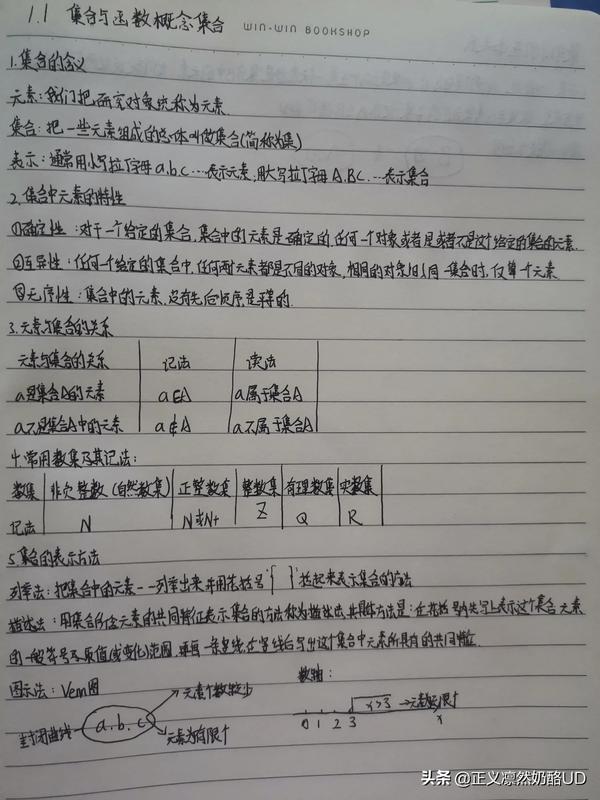 1.1 集合与函数概念集合 WIN-WIN BOOKSHOP
1.集合的含义
元素：我们把研究对象统称为元素.
集合：把一些元素组成的总体叫做集合(简称为集)
表示：通常用小写拉丁字母a.b.c…表示元素，用大写拉丁字母A.B.C.…表示集合
2.集合中元素的特性
①确定性：对于一个给定的集合，集合中的元素是确定的，任何一个对象或者是或者不是这个给定的集合的元素.
②互异性：任何一个给定的集合中，任何两个元素都是不同的对象，相同的对象归入同一集合时，仅算一个元素
③无序性：集合中的元素，没有先后顺序，是平等的.
3.元素与集合的关系
元素与集合的关系 记法 读法
a是集合A的元素 a∈A a属于集合A
a不是集合A中的元素 a∉A a不属于集合A
4.常用数集及其记法：
数集 非负整数(自然数集) 正整数集 整数集 有理数集 实数集
记法 N N*或N+ Z Q R
5.集合的表示方法
列举法：把集合中的元素一一列举出来并用花括号“{ }”括起来表示集合的方法
描述法：用集合所含元素的共同特征表示集合的方法称为描述法，具体方法是：在花括号内先写上表示这个集合元素
的一般符号及取值(或变化)范围，再画一条竖线，在竖线后写出这个集合中元素所具有的共同特征.
图示法：Venn图 数轴：
元素个数较少
x>3 →元素无限个
封闭曲线 a.b.c
0 1 2 3 x
元素为有限个
头条 @正义凛然奶酪UD